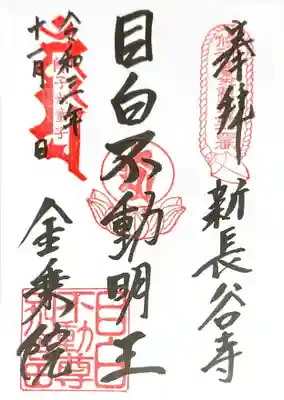 奉拝
新長谷寺
目白不動明王
令和二年
十一月 日
金乗院
目白
不動尊